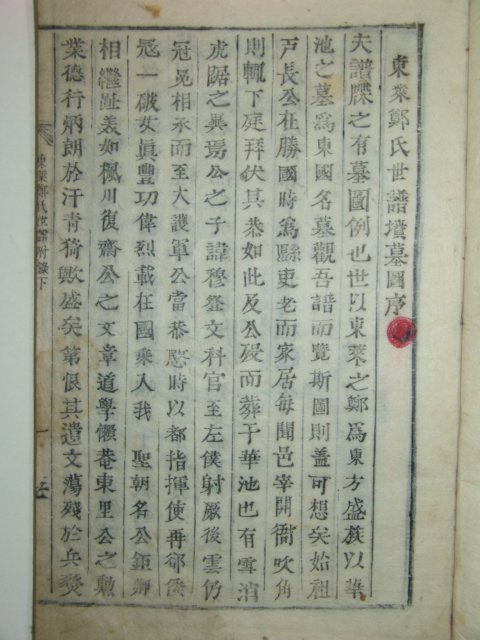 東萊鄭氏世譜墳墓圖序
夫譜牒之有墓圖例也世以東萊之鄭爲東方盛族以華
池之墓爲東國名墓觀吾譜而覽斯圖則盖可想矣始祖
戸長公在勝國時爲縣吏老而家居每聞邑宰開衙吹角
則輒下庭拜伏其恭如此及公歿而葬于華池也有雪消
虎踞之異焉公之子諱穆登文科官至左僕射厥後雲仍
冠冕相承而至大護軍公當恭愍時以都指揮使再却倭
冦一破女眞豐功偉烈載在國乘入我 聖朝名公鉅卿
相繼趾美如楓川復齋公之文章道學懶菴東里公之勳
業德行炳朗於汗青猗歟盛矣第恨其遺文蕩殘於兵燹
東萊鄭氏世譜附錄下 一